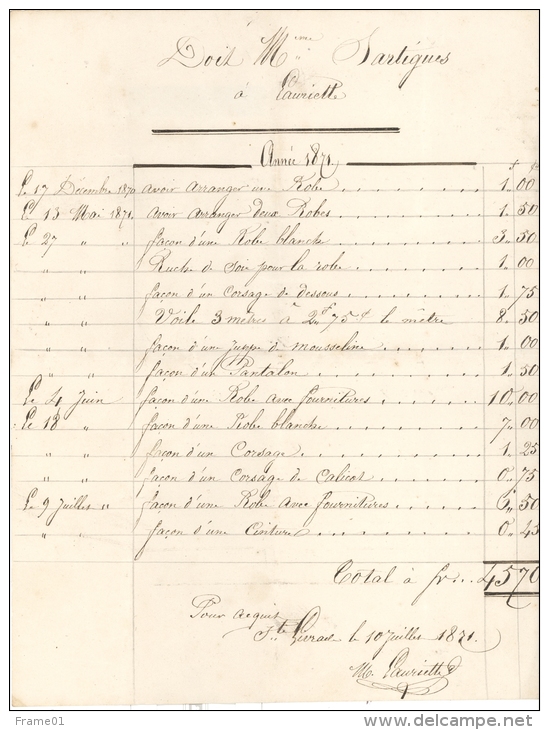 Doit Mme Sartigues
à Lauriette
Année 1871.
f c
Le 17 Décembre 1870 avoir arranger une Robe 1" 00
Le 13 Mai 1871. avoir arranger deux Robes 1. 50
Le 27 " " façon d'une Robe blanche 3" 50
" " Ruche de soie pour la robe 1" 00
" " façon d'un corsage de dessous 1. 75
" " Voile 3 mètres à 2"f 75c le mètre 8. 50
" " façon d'un juppe de mousseline 1" 00
" " façon d'un Pantalon 1" 50
Le 4 Juin façon d'une Robe avec fournitures 10" 00
Le 18 " façon d'une Robe blanche 7" 00
" " façon d'un Corsage 1" 25
" " façon d'un Corsage de Calicot 0" 75
Le 9 Juillet " façon d'une Robe avec fournitures 6" 50
" " façon d'une Cinture 0" 45
Total à fr. 45 70
Pour acquit
Ste Livrade le 10 juillet 1871.
M. Lauriette
Frame01
delcampe.net